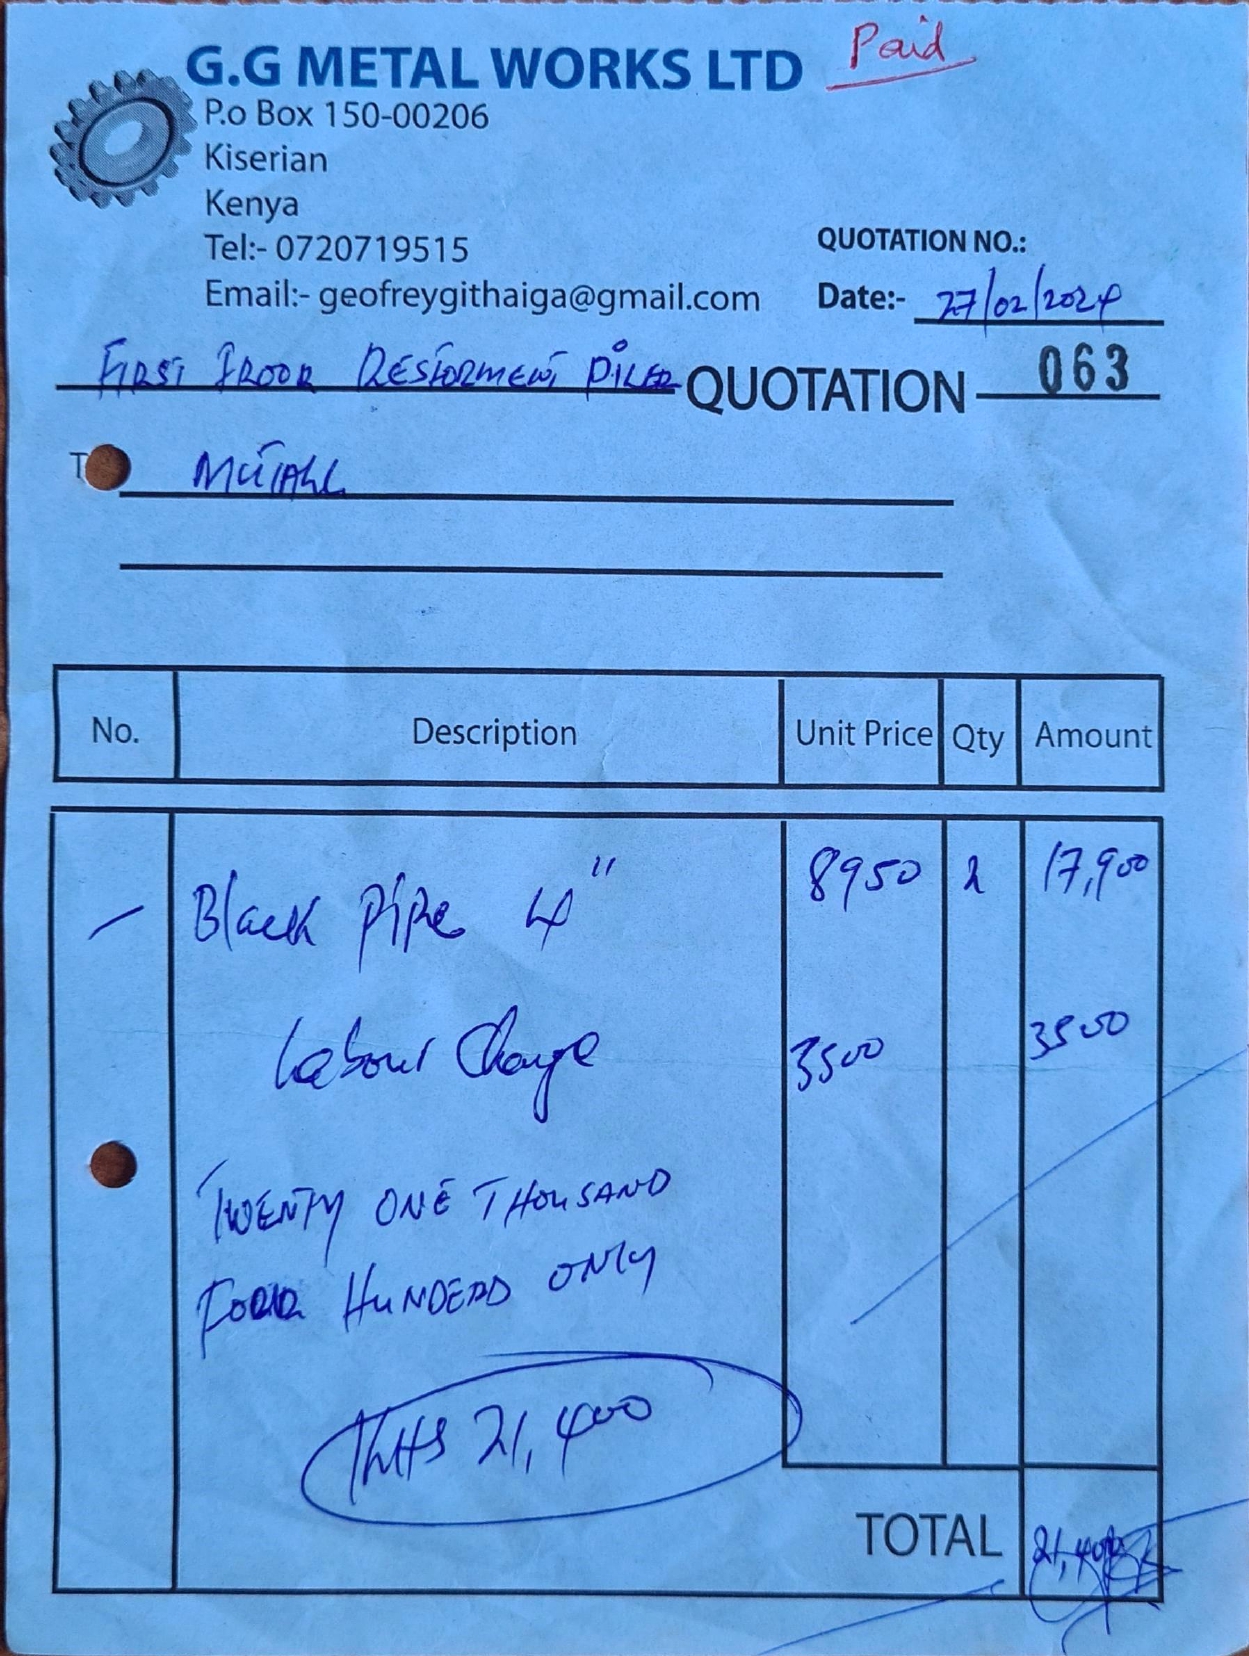 G.G METAL WORKS LTD
Paid
P.o Box 150-00206
Kiserian
Kenya
Tel:- 0720719515
Email:- geofreygithaiga@gmail.com
QUOTATION NO.:
Date:- 27/02/2024
FIRST FROOR
QUOTATION 063
T
No. Description Unit Price Qty Amount
Black Pipe 4" 8950 2 17,900
Labour Charge 3500 3500
TWENTY ONE THOUSAND
FOUR HUNDERD ONLY
KSHS 21,400
TOTAL 21,400